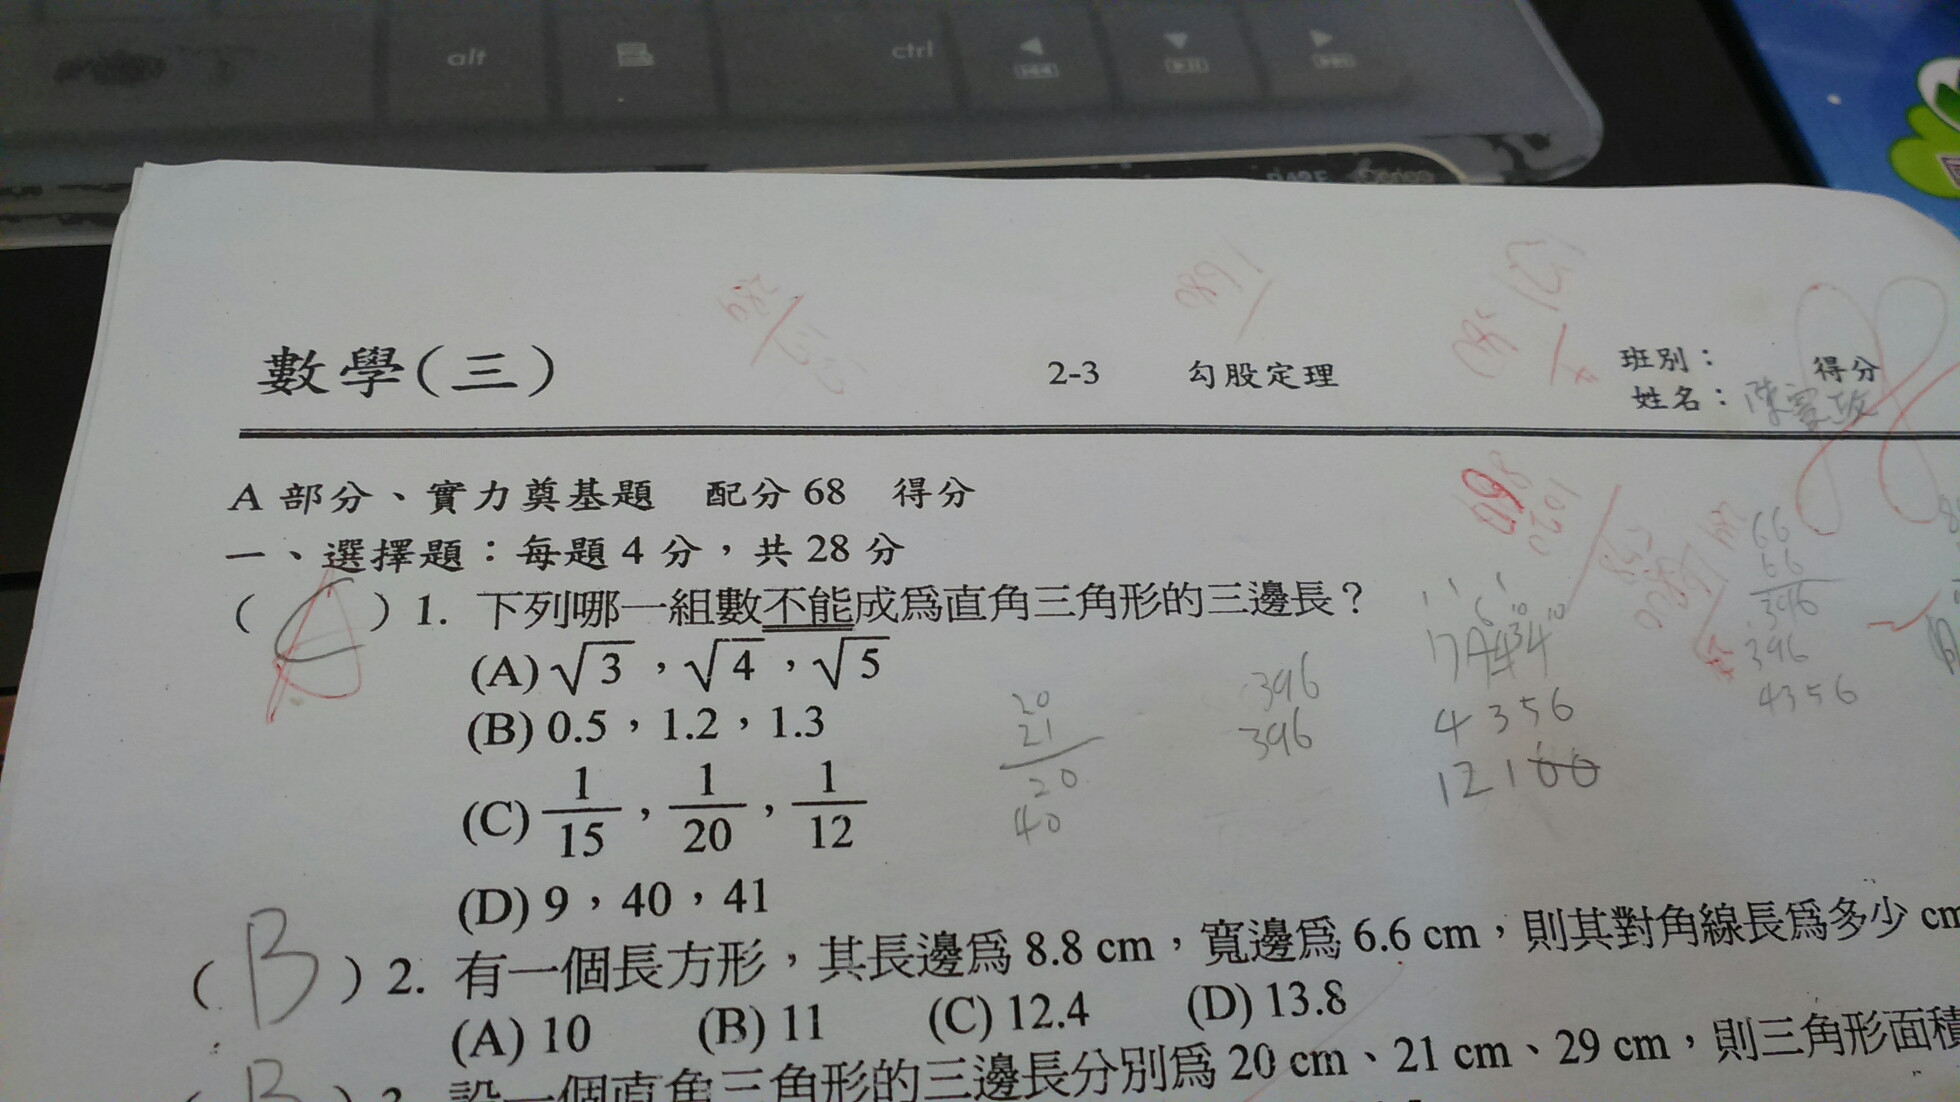 alt ctrl
數學(三) 2-3 勾股定理 班別： 得分
姓名：陳
A 部分、實力奠基題 配分 68 得分
一、選擇題：每題 4 分，共 28 分
( C A ) 1. 下列哪一組數不能成為直角三角形的三邊長？
(A) √3，√4，√5
(B) 0.5，1.2，1.3
(C) 1/15，1/20，1/12
(D) 9，40，41
20
21
20
40
396
396
7744
4356
12100
66
66
396
396
4356
( B ) 2. 有一個長方形，其長邊為 8.8 cm，寬邊為 6.6 cm，則其對角線長為多少 cm
(A) 10 (B) 11 (C) 12.4 (D) 13.8
( B ) 3. 設一個直角三角形的三邊長分別為 20 cm、21 cm、29 cm，則三角形面積